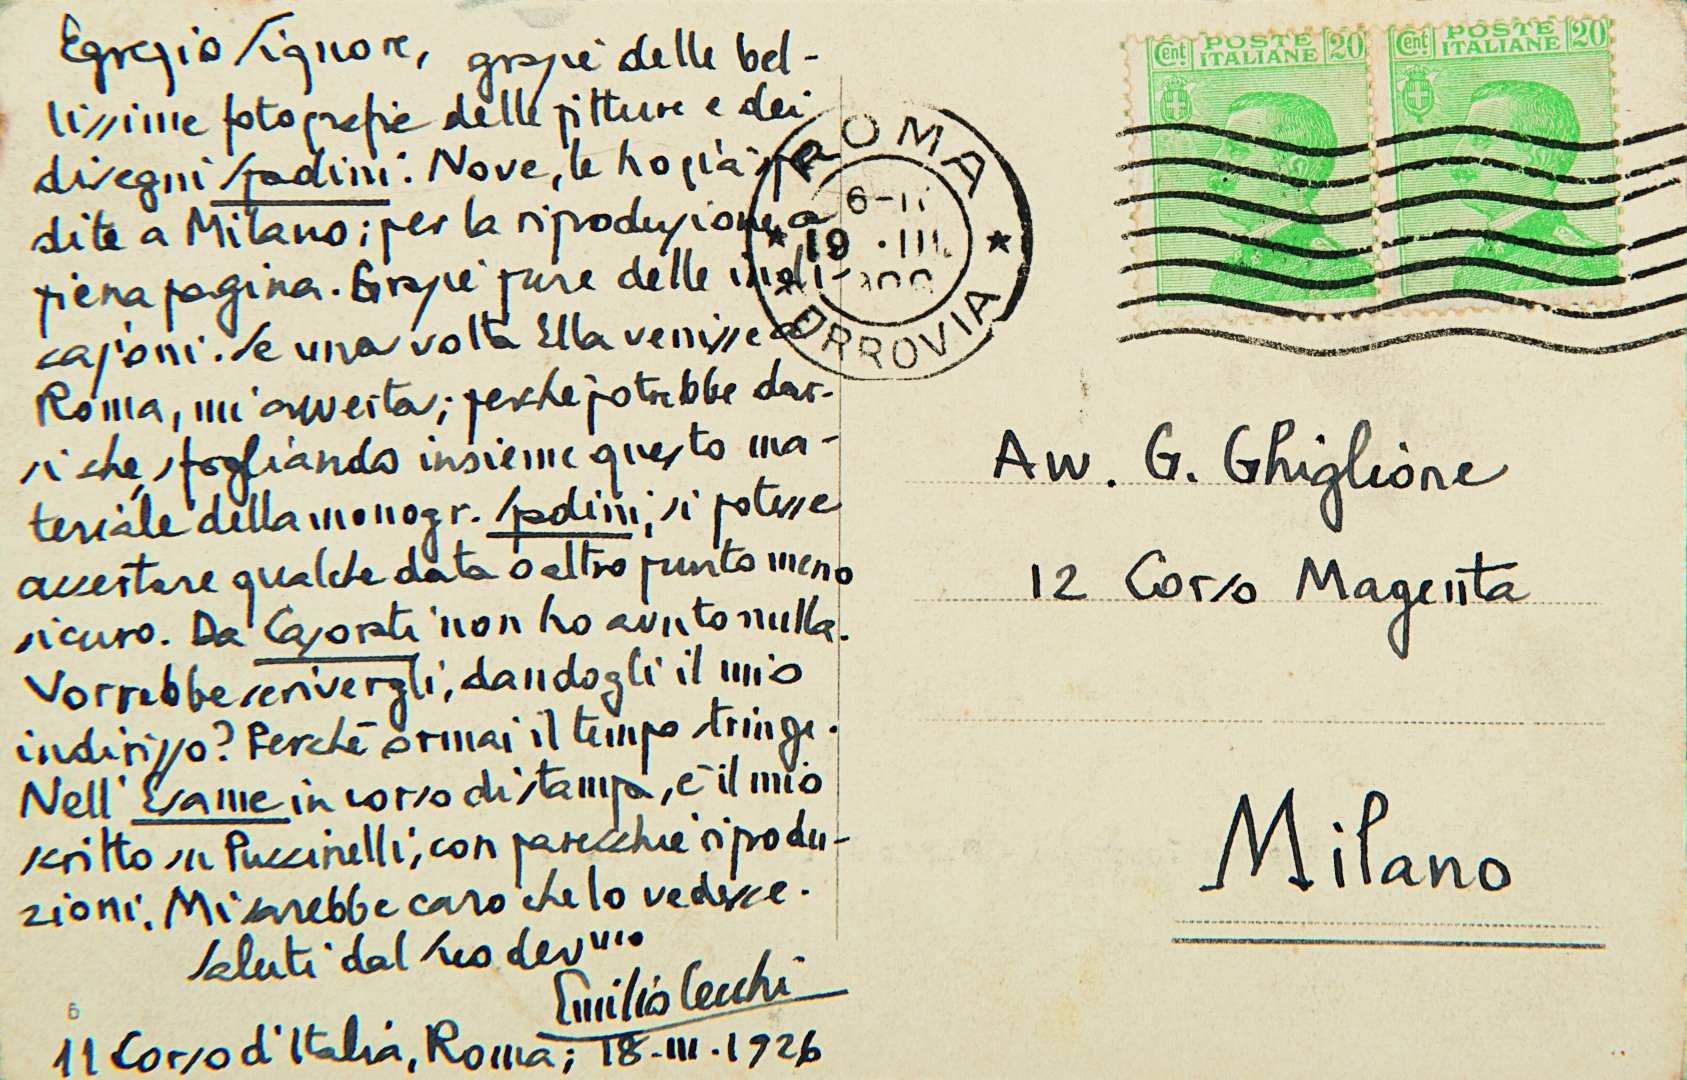 Egregio Signore, grazie delle bel-
lissime fotografie delle pitture e dei
disegni Spadini. Nove, le ho già spe-
dite a Milano; per la riproduzione a
piena pagina. Grazie pure delle indi-
cazioni. Se una volta Ella venisse a
Roma, mi avverta; perché potrebbe dar-
si che, sfogliando insieme questo ma-
teriale della monogr. Spadini, si potesse
accertare qualche data o altro punto meno
sicuro. Da Casorati non ho avuto nulla.
Vorrebbe scrivergli, dandogli il mio
indirizzo? Perchè ormai il tempo stringe.
Nell'Esame in corso di stampa, è il mio
scritto su Puccinelli, con parecchie riprodu-
zioni. Mi sarebbe caro che lo vedesse.
Saluti dal suo devmo
Emilio Cecchi
11 Corso d'Italia, Roma; 18-III-1926
6
ROMA
6-
19 .III.
FERROVIA
Cent POSTE ITALIANE 20
Cent POSTE ITALIANE 20
Avv. G. Ghiglione
12 Corso Magenta
Milano